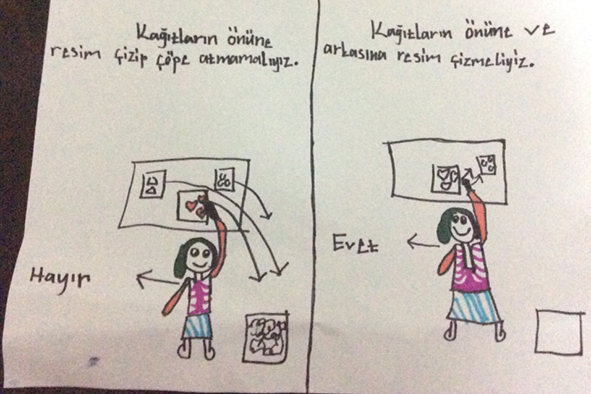 Kağıtların önüne
resim çizip çöpe atmamalıyız.
Hayır
Kağıtların önüne ve
arkasına resim çizmeliyiz.
Evet